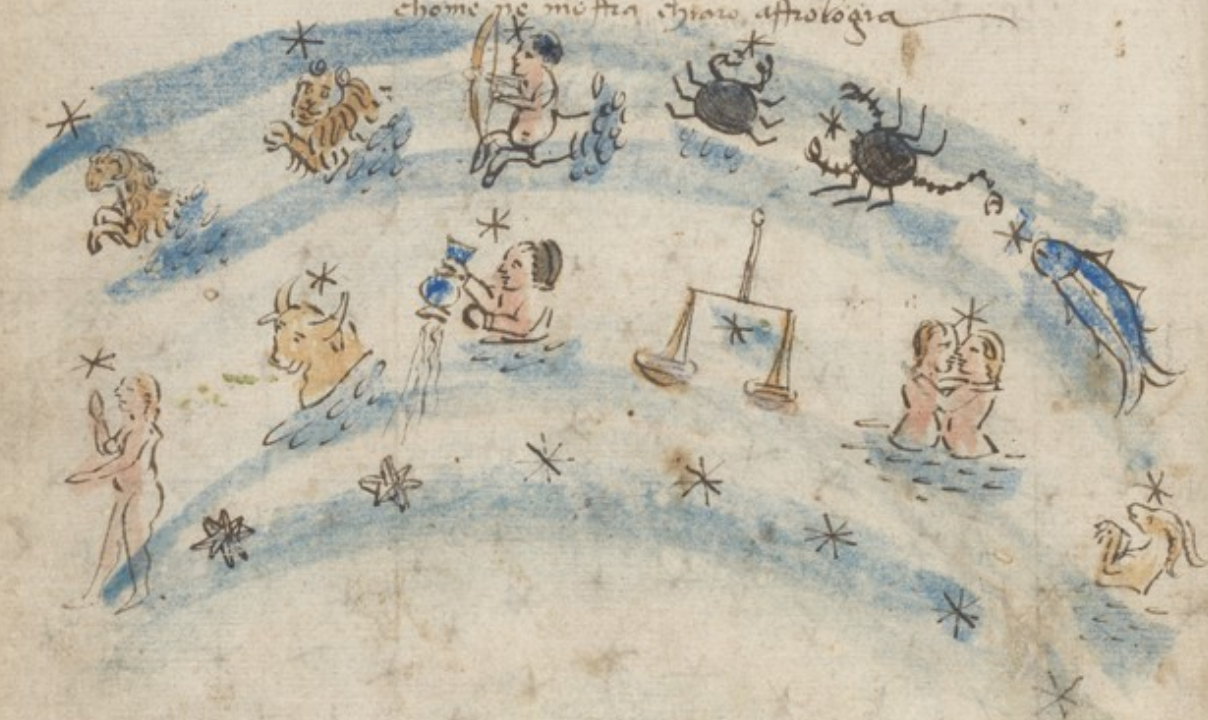 chome ne mostra chiaro astrologia